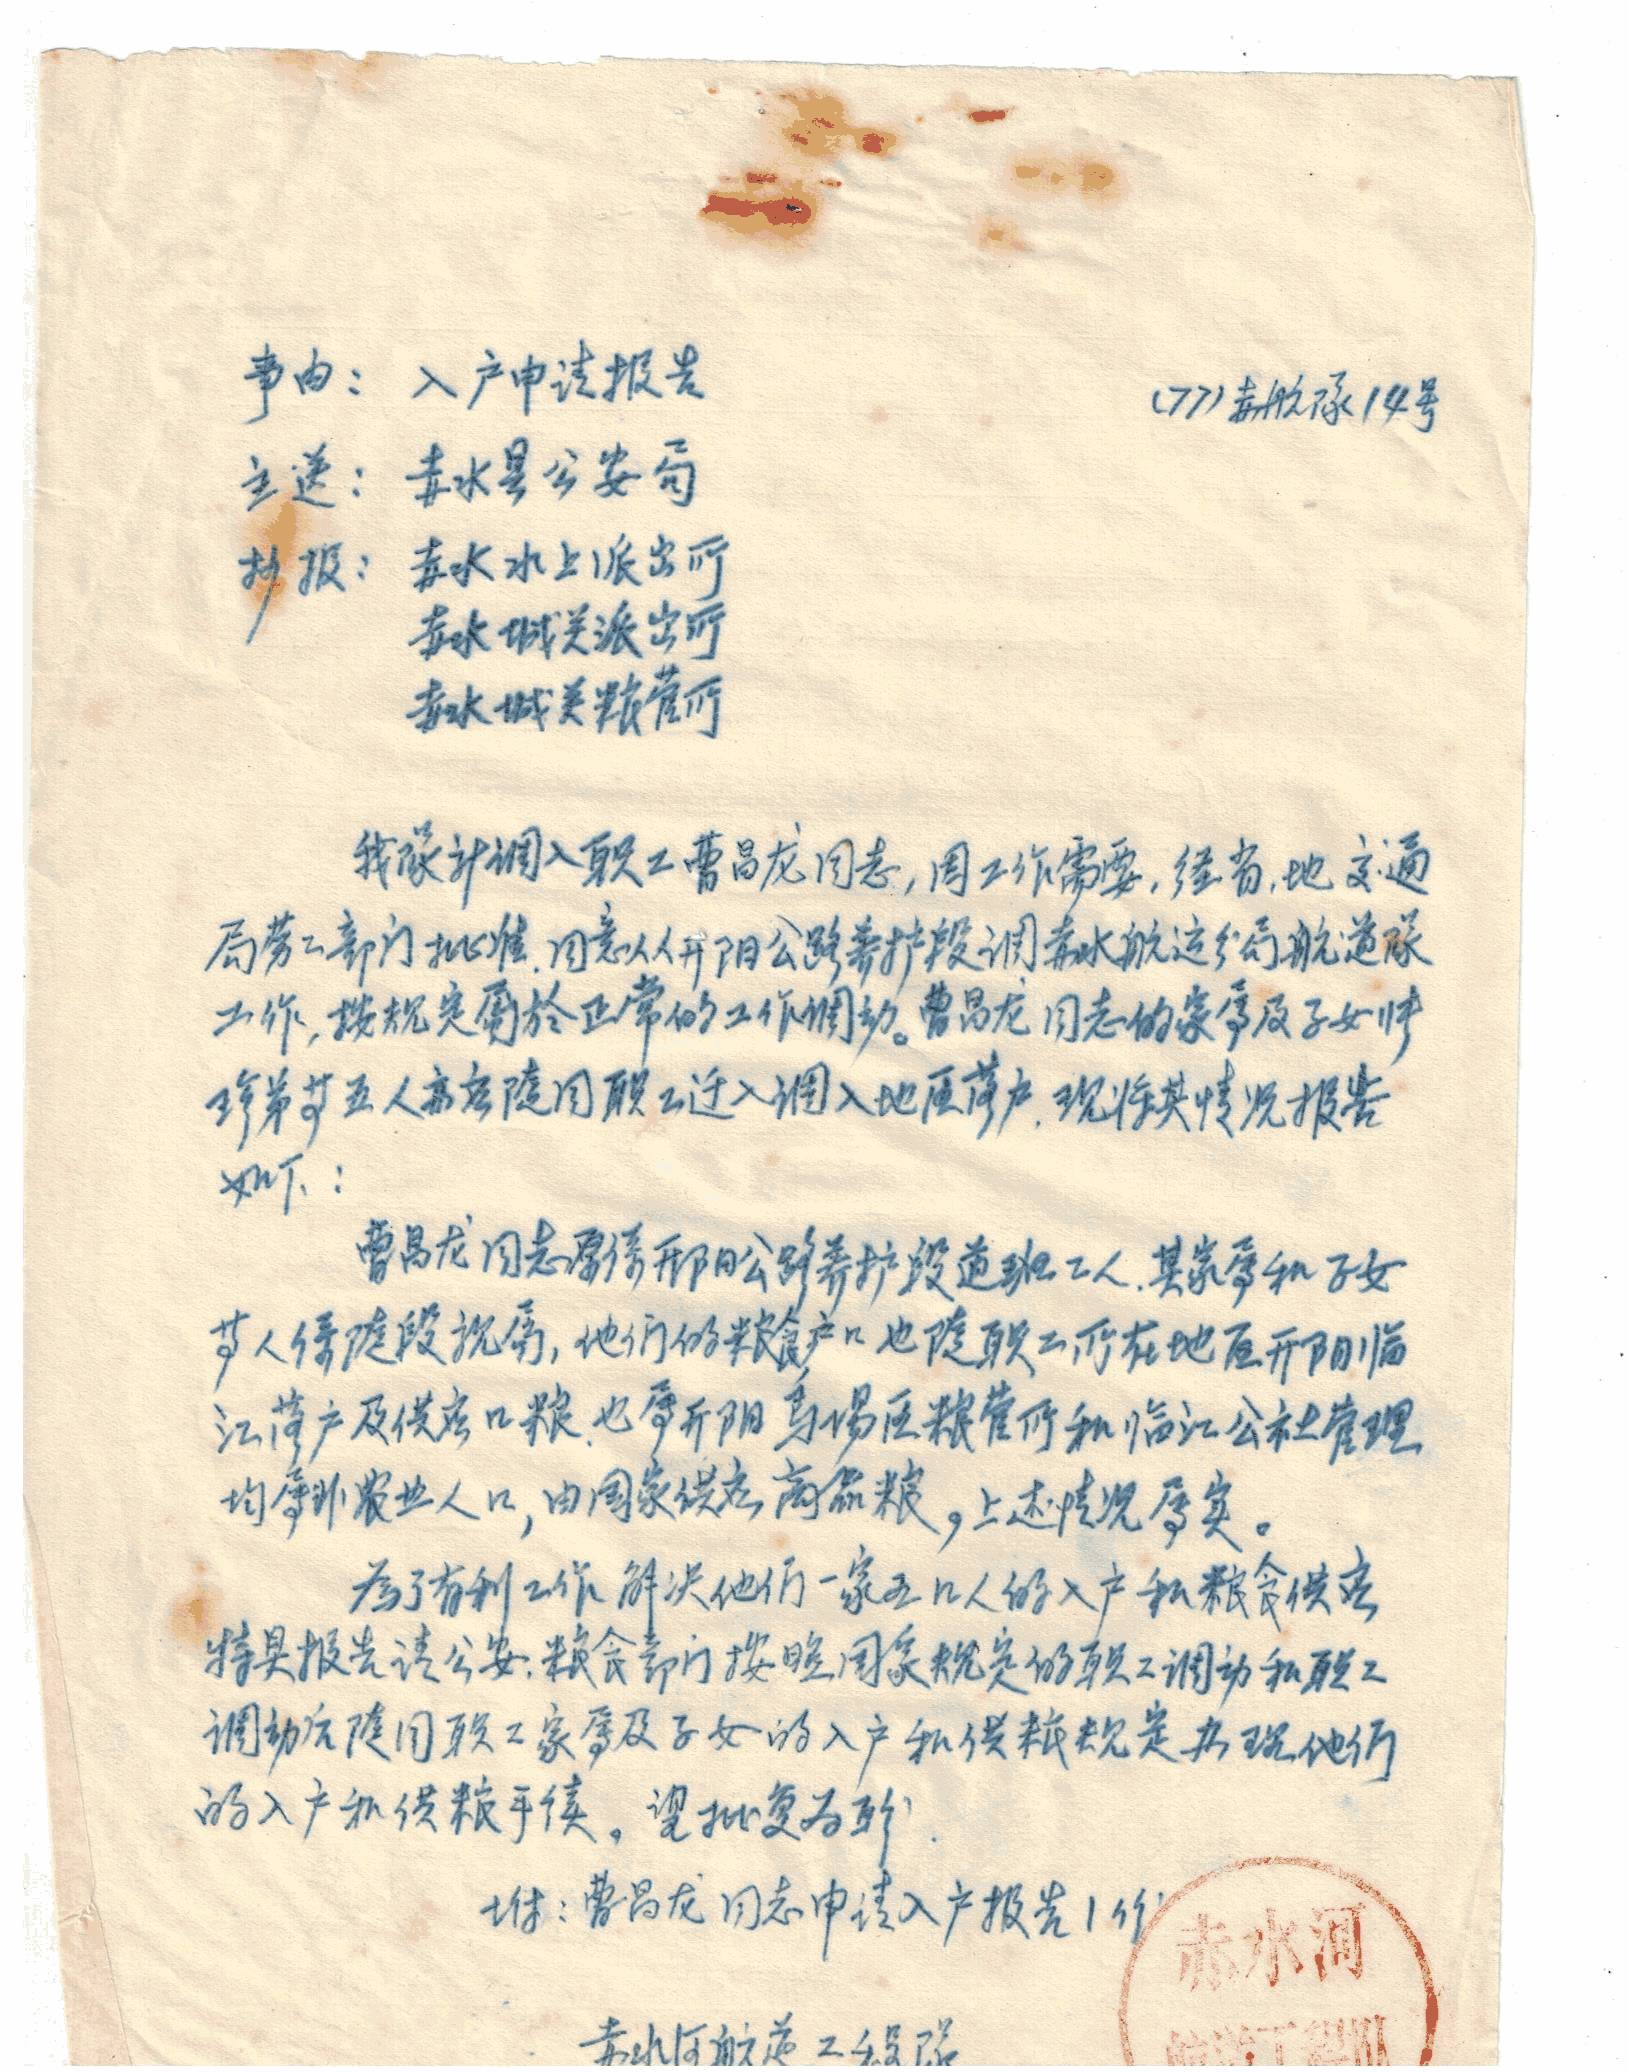 事由：入户申请报告
(77)赤航隊14号
主送：赤水县公安局
抄报：赤水水上派出所
赤水城关派出所
赤水城关粮管所
我隊计调入职工曹昌龙同志,因工作需要,经省,地交通
局劳工部门批准.同意从开阳公路养护段调赤水航运分局航道隊
工作,按规定属於正常的工作调动。曹昌龙同志的家属及子女
等五人亦应随同职工迁入调入地区落户.现将其情况报告
如下：
曹昌龙同志原係开阳公路养护段道班工人.其家属和子女
等人係随段家属,他们的粮食户口也随职工所在地区开阳临
江落户及供应口粮.也属开阳马场区粮管所和临江公社管理
均属非农业人口,由国家供应商品粮,上述情况属实。
为了有利工作解决他们一家五口人的入户和粮食供应
特具报告请公安.粮食部门按照国家规定的职工调动和职工
调动后随同职工家属及子女的入户和供粮规定办理他们
的入户和供粮手续。望批复为盼.
附：曹昌龙同志申请入户报告1份
赤水河航道工程隊
赤水河
航道工程队